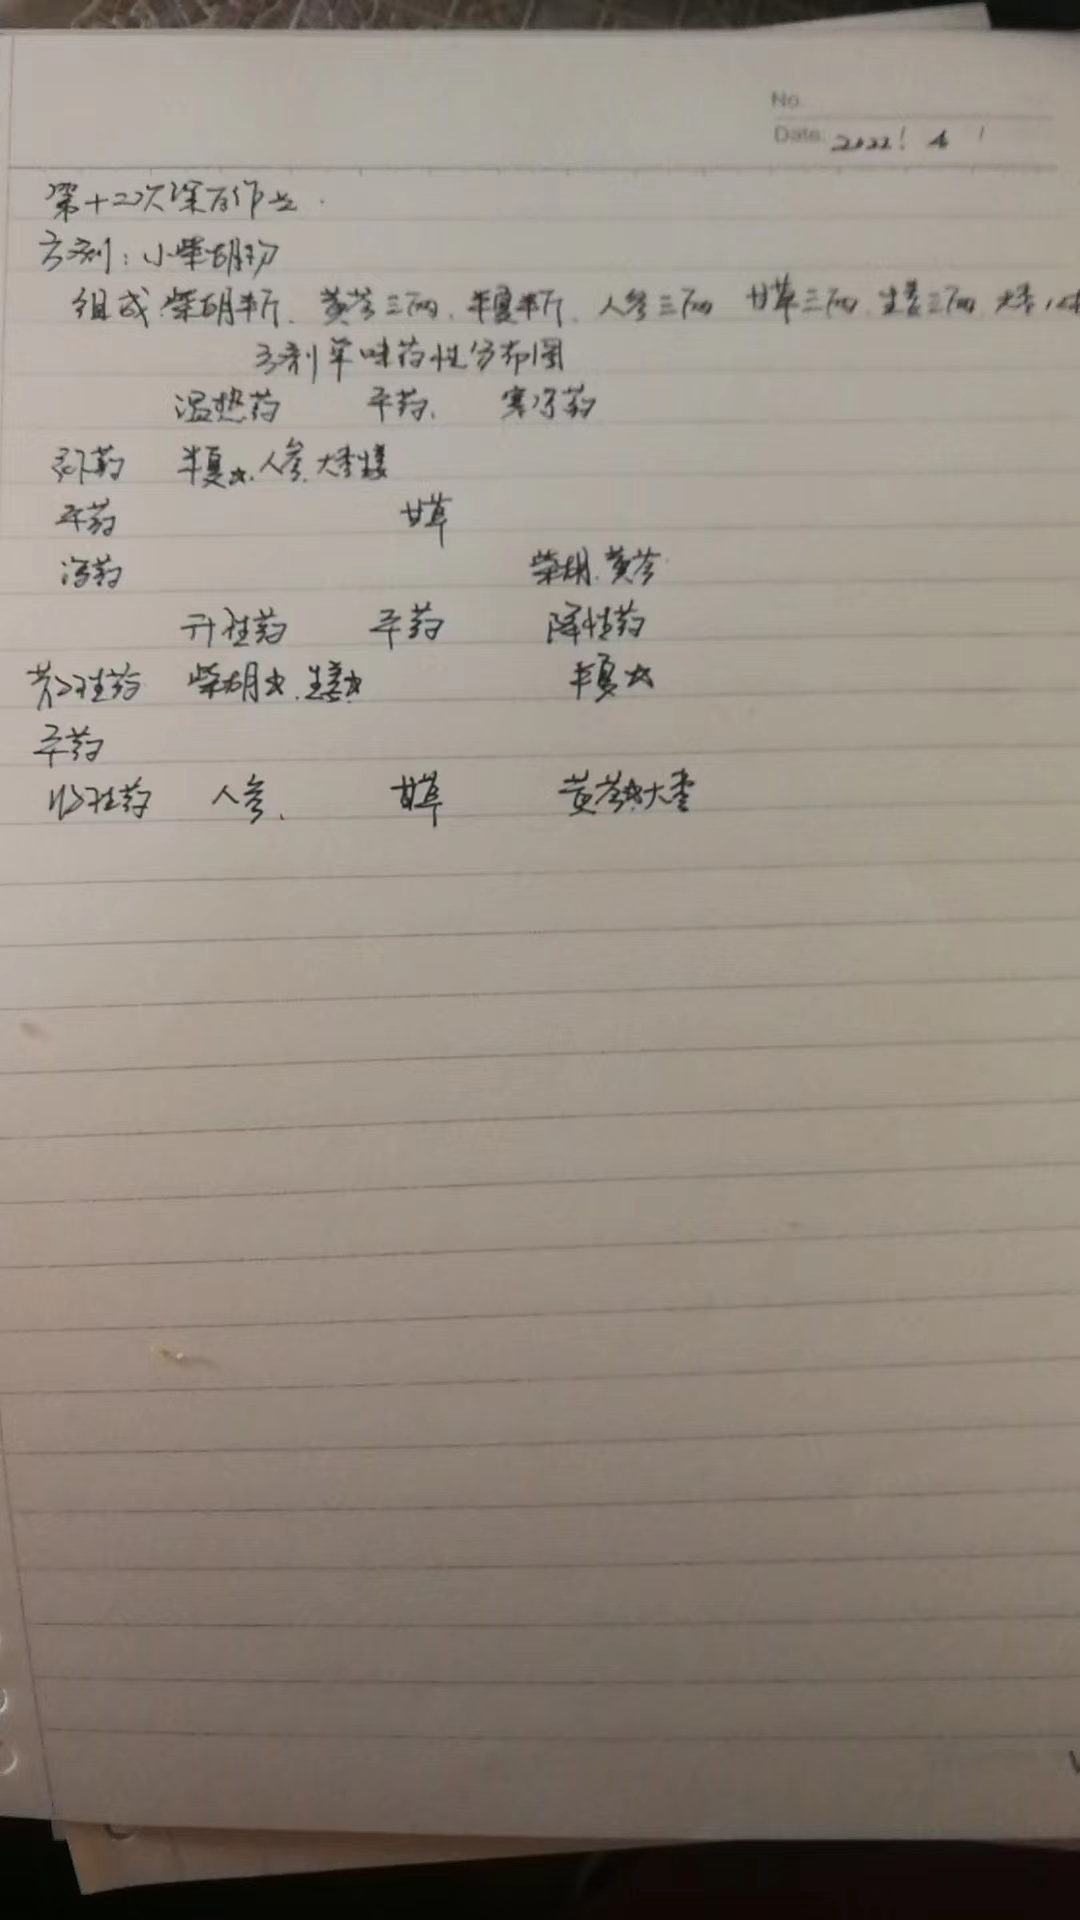 No.
Date. 2022! 4 1
第十二次课后作业.
方剂:小柴胡汤
组成:柴胡半斤、黄芩三两、半夏半斤、人参三两 甘草三两、生姜三两、大枣12
方剂单味药性分布图
温热药 平药、 寒凉药
补药 半夏☆、人参、大枣生姜
平药 甘草
泻药 柴胡、黄芩
升性药 平药 降性药
散性药 柴胡☆、生姜☆ 半夏☆
平药
收性药 人参、 甘草 黄芩☆大枣